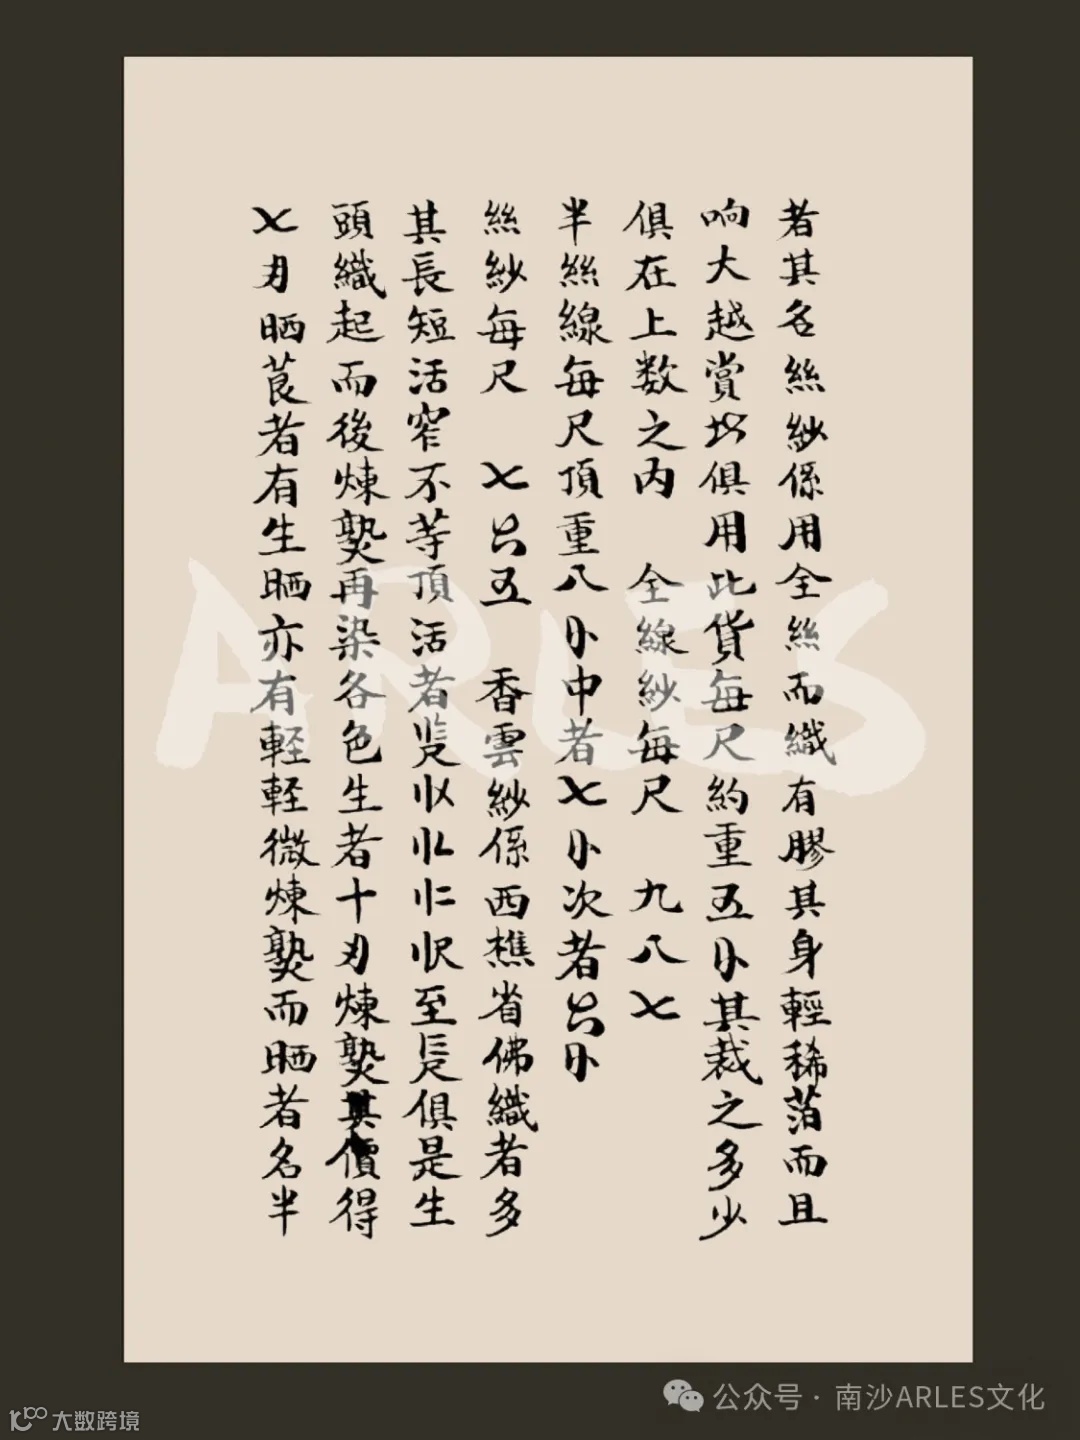 者其名絲紗係用全絲而織有膠其身輕稀萡而且
响大越賞扷俱用此貨每尺約重五卜其裁之多少
俱在上数之内 全線紗每尺 九八七
半絲線每尺頂重八卜中者乂卜次者卜
絲紗每尺 乂五 香雲紗係西樵省佛織者多
其長短活窄不等頂活者至俱是生
頭織起而後煉𤍠再染各色生者十刄煉𤍠其價得
乂刄晒莨者有生晒亦有輕輕微煉𤍠而晒者名半
ARLES
公众号 · 南沙ARLES文化
大数跨境